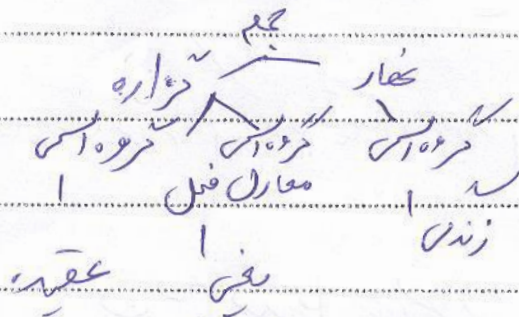 جمع
نهاد گزاره
گروه اسمی گروه اسمی گروه اسمی
معادل فعل
زندگی یعنی عقیده